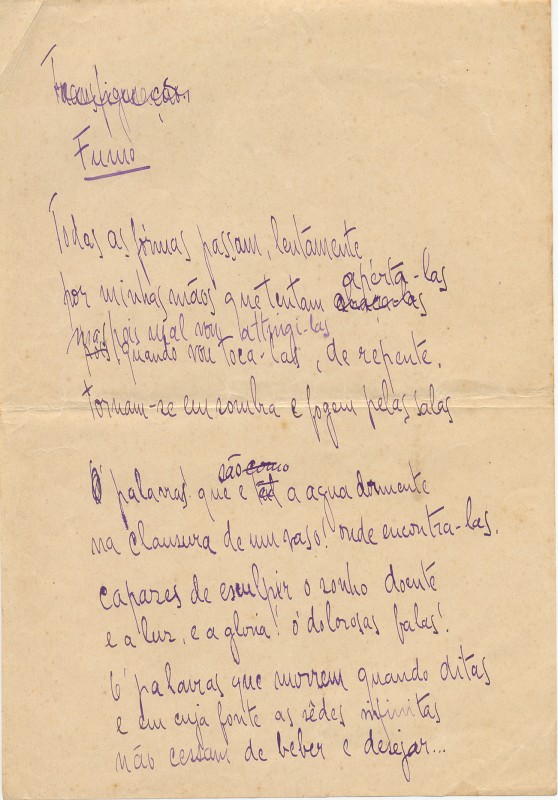 Transfiguração
Fumo
Todas as fórmas passam, lentamente
apérta-las
por minhas mãos que tentam
mas pois mal vou attingi-las
pois quando vou toca-las, de repente,
tornam-se em sombra e fogem pelas salas
são como
Ó palavras que é a agua dormente
na clausura de um vaso! onde encontra-las,
capazes de esculpir o sonho doente
e a luz, e a gloria! ó dolorosas falas!
Ó palavras que morrem quando ditas
e em cuja fonte as sêdes infinitas
não cessam de beber e desejar...